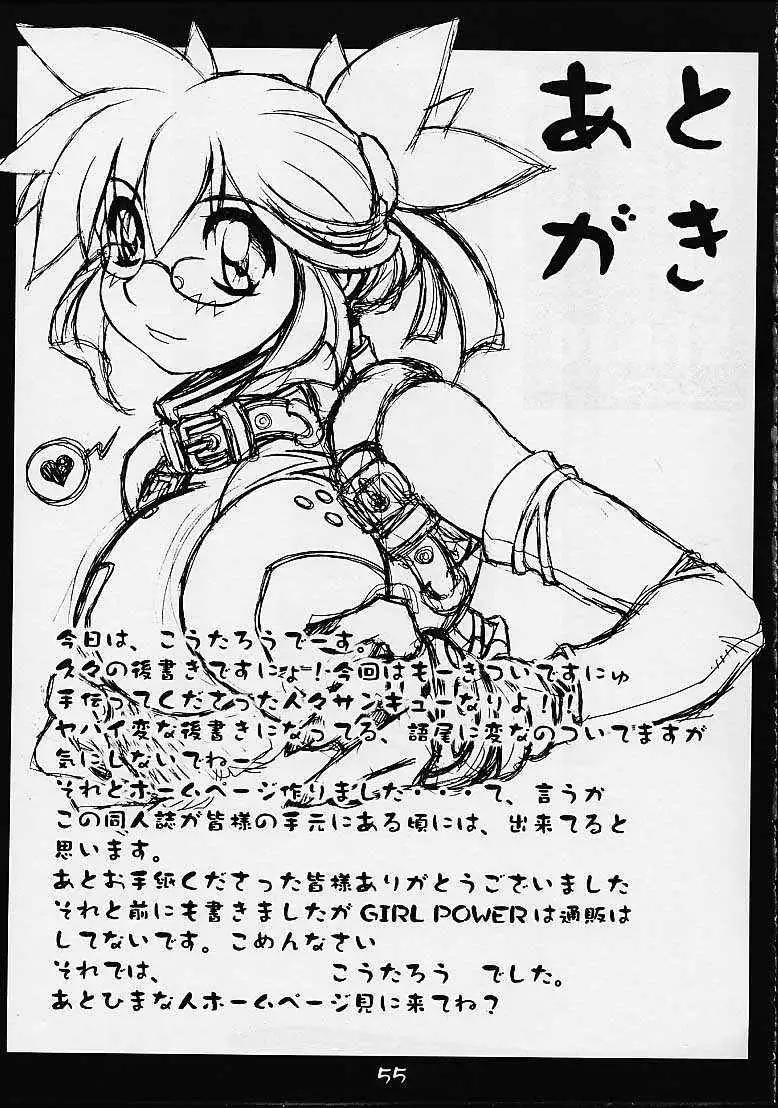 あと
がき
今日は、こうたろうでーす。
久々の後書きですにょー!今回はもーきついですにゅ
手伝ってくださった人々サンキューなりよ!!
ヤバイ変な後書きになってる、語尾に変なのついてますが
気にしないでねー
それとホームページ作りました・・・て、言うか
この同人誌が皆様の手元にある頃には、出来てると
思います。
あとお手紙くださった皆様ありがとうございました
それと前にも書きましたがGIRL POWERは通販は
してないです。ごめんなさい
それでは、 こうたろう でした。
あとひまな人ホームページ見に来てね?
55